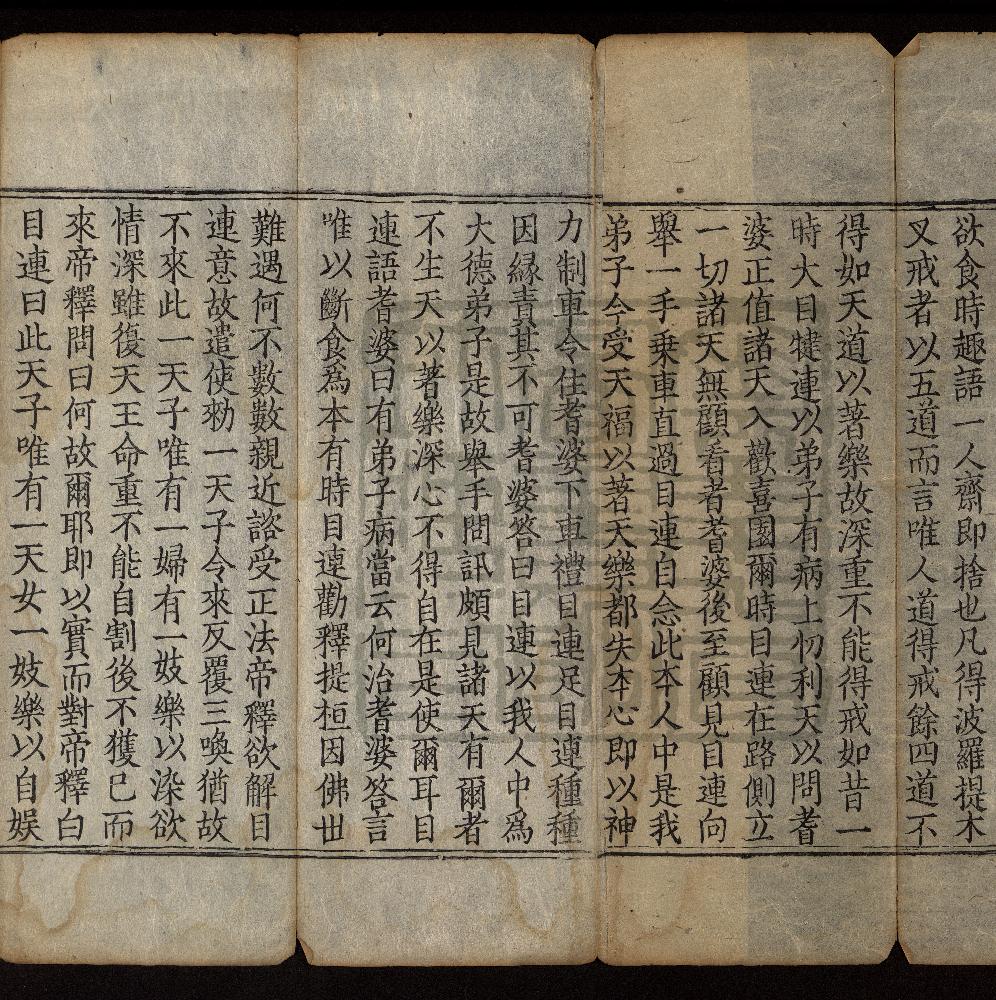 欲食時趣語一人齋即捨也凡得波羅提木
叉戒者以五道而言唯人道得戒餘四道不
得如天道以著樂故深重不能得戒如昔一
時大目犍連以弟子有病上忉利天以問耆
婆正值諸天入歡喜園爾時目連在路側立
一切諸天無顧看者耆婆後至顧見目連向
舉一手乗車直過目連自念此本人中是我
弟子今受天福以著天樂都失本心即以神
力制車令住耆婆下車禮目連足目連種種
因緣責其不可耆婆答曰目連以我人中爲
大德弟子是故舉手問訊頗見諸天有爾者
不生天以著樂深心不得自在是使爾耳目
連語耆婆曰有弟子病當云何治耆婆答言
唯以斷食爲本有時目連勸釋提桓因佛世
難遇何不數數親近諮受正法帝釋欲解目
連意故遣使勑一天子令來反覆三喚猶故
不來此一天子唯有一婦有一妓樂以染欲
情深雖復天王命重不能自割後不獲已而
來帝釋問曰何故爾耶即以實而對帝釋白
目連曰此天子唯有一天女一妓樂以自娛